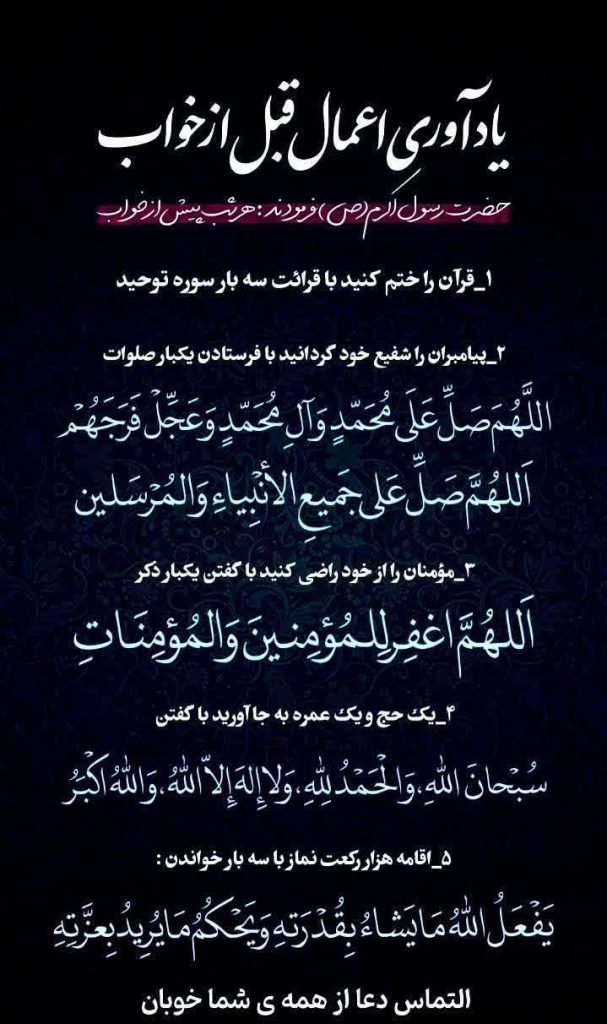 یادآوری اعمال قبل از خواب
حضرت رسول اکرم (ص) فرمودند: هر شب پیش از خواب
۱_قرآن را ختم کنید با قرائت سه بار سوره توحید
۲_پیامبران را شفیع خود گردانید با فرستادن یکبار صلوات
اللَّهُمَ صَلِّ عَلَى مُحَمَّدٍ وَآلِ مُحَمَّدٍ وَعَجِّلْ فَرَجَهُمْ
اَللهُمَّ صَلِّ عَلی جَمیعِ الأنْبِیاءِ وَالمُرْسَلین
۳_مؤمنان را از خود راضی کنید با گفتن یکبار ذکر
اَللهُمَّ اغفِر لِلمُؤمِنینَ وَالمُؤمِنَاتِ
۴_یک حج و یک عمره به جا آورید با گفتن
سُبْحانَ اللهِ، وَالْحَمْدُ لِلهِ، وَلا إِلهَ إِلاّ اللهُ، وَاللهُ اَکْبَرُ
۵_اقامه هزار رکعت نماز با سه بار خواندن :
يَفْعَلُ اللهُ مَا يَشاءُ بِقُدْرَتِهِ وَيَحْكُمُ مَا يُرِيدُ بِعِزَّتِهِ
التماس دعا از همه ی شما خوبان